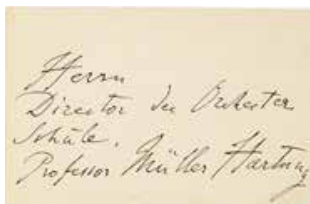 Herrn
Director der Orchester
Schule,
Professor Müller Hartung